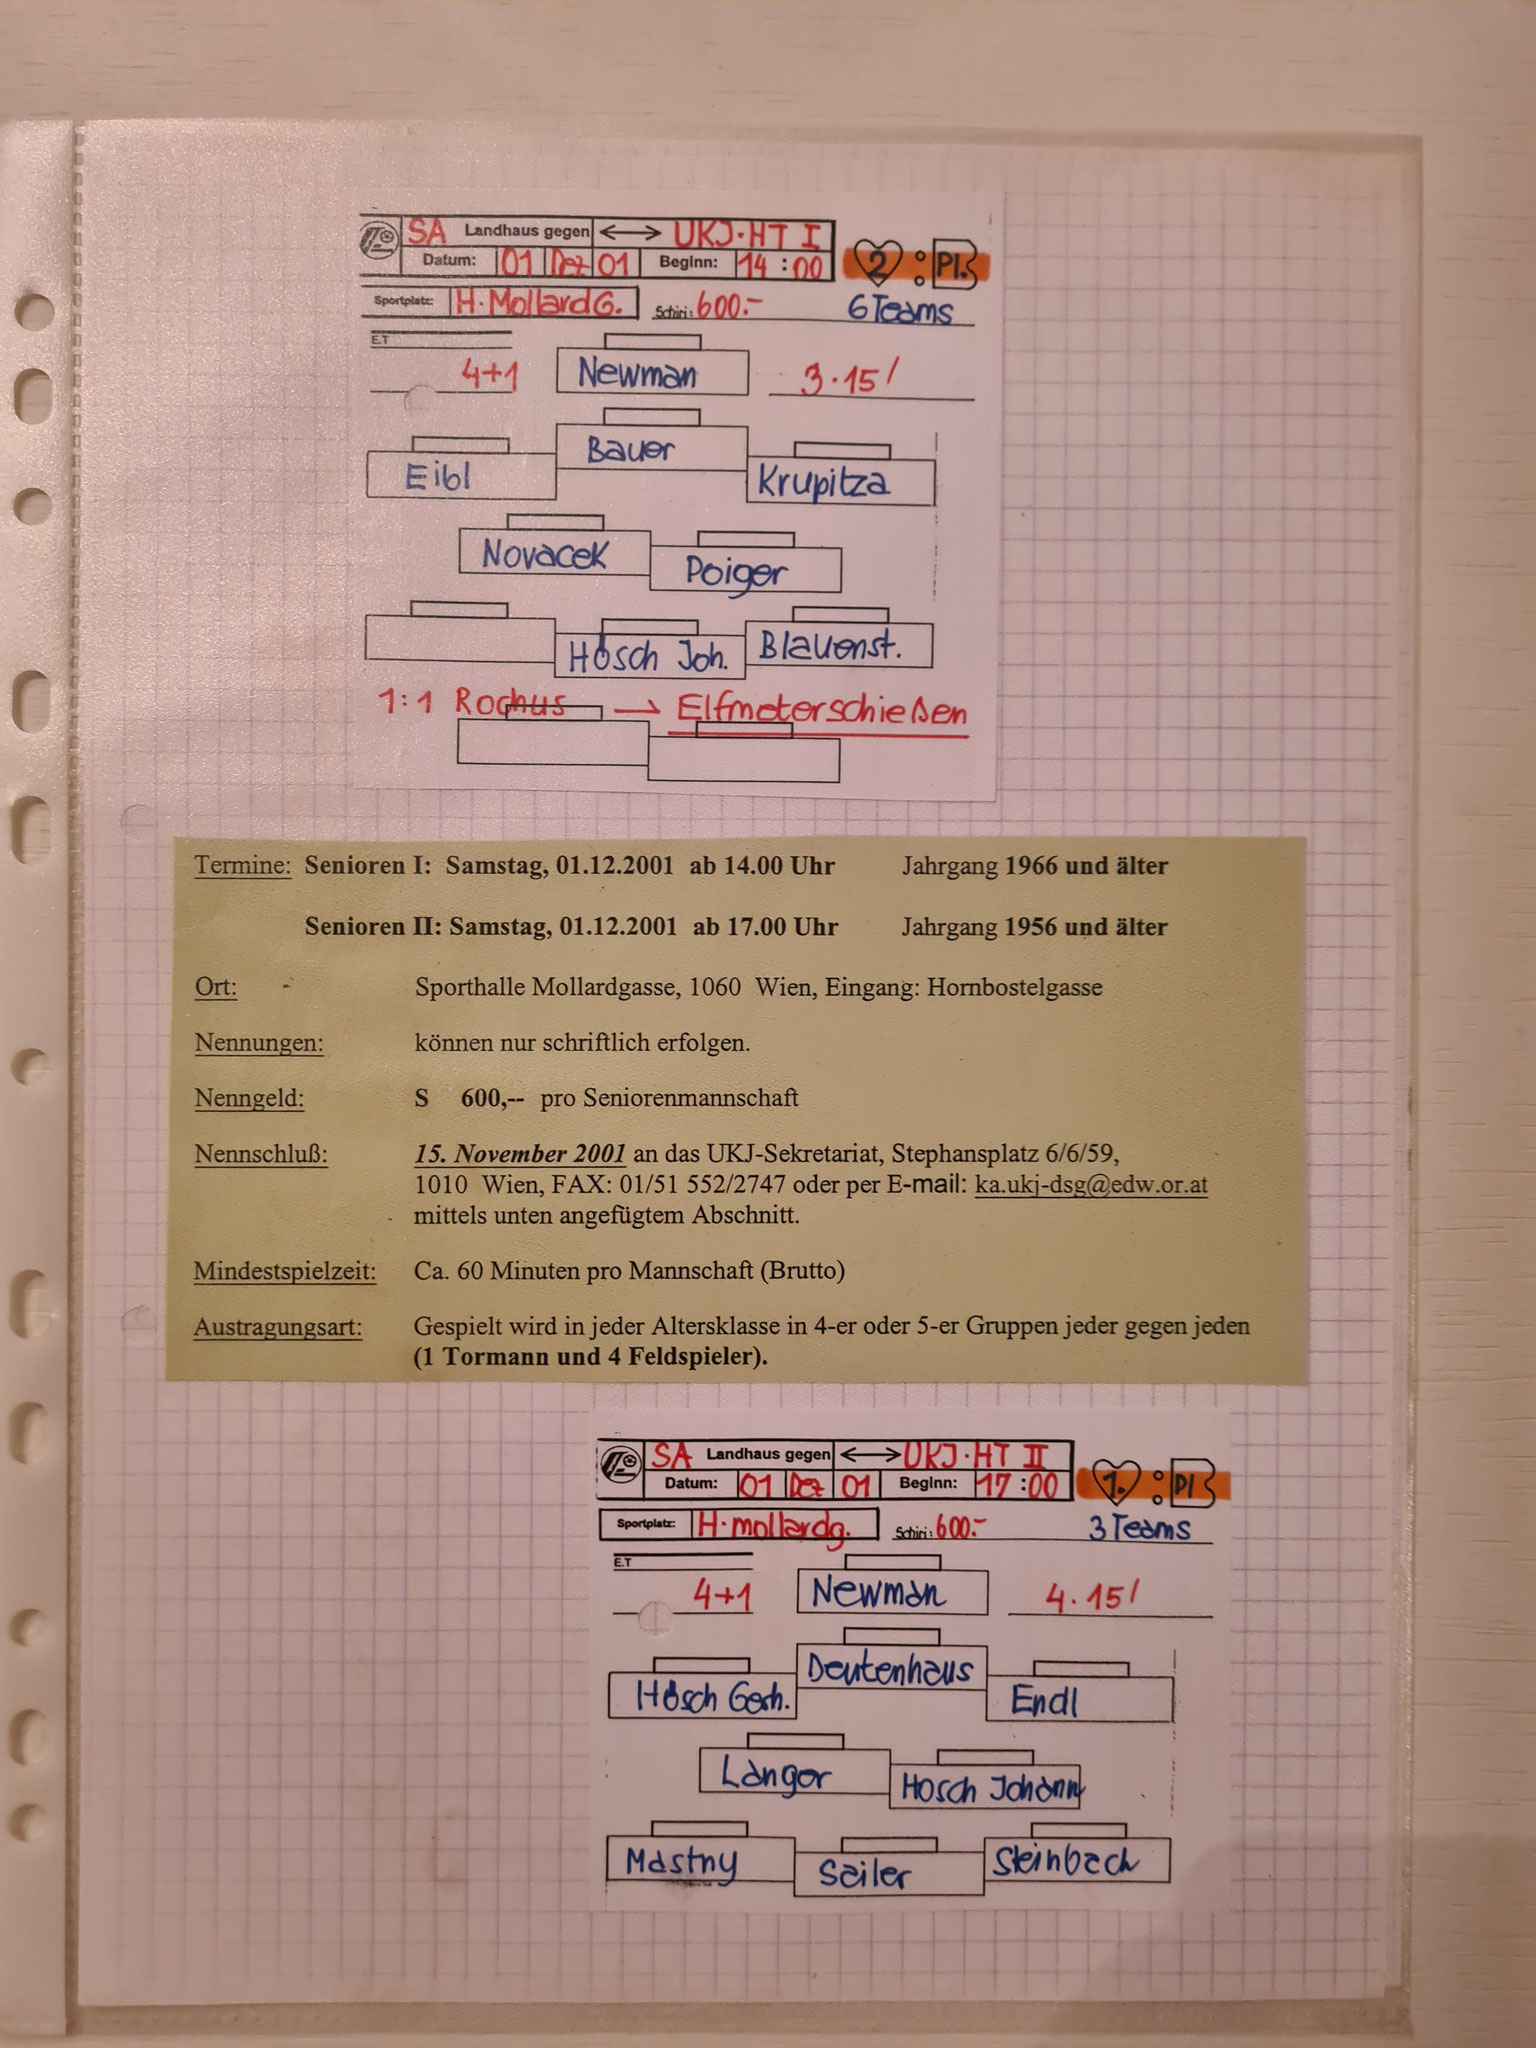 SA Landhaus gegen ⟷ UKJ·HT I
Datum: 01 Dez 01 Beginn: 14:00 2 : Pl.
Sportplatz: H·MollardG. Schiri: 600.- 6 Teams
E.T
4+1 Newman 3·15'
Bauer
Eibl Krupitza
Novacek Poiger
Hösch Joh. Blauenst.
1:1 Rochus → Elfmeterschießen
Termine: Senioren I: Samstag, 01.12.2001 ab 14.00 Uhr Jahrgang 1966 und älter
Senioren II: Samstag, 01.12.2001 ab 17.00 Uhr Jahrgang 1956 und älter
Ort: Sporthalle Mollardgasse, 1060 Wien, Eingang: Hornbostelgasse
Nennungen: können nur schriftlich erfolgen.
Nenngeld: S 600,-- pro Seniorenmannschaft
Nennschluß: 15. November 2001 an das UKJ-Sekretariat, Stephansplatz 6/6/59,
1010 Wien, FAX: 01/51 552/2747 oder per E-mail: ka.ukj-dsg@edw.or.at
mittels unten angefügtem Abschnitt.
Mindestspielzeit: Ca. 60 Minuten pro Mannschaft (Brutto)
Austragungsart: Gespielt wird in jeder Altersklasse in 4-er oder 5-er Gruppen jeder gegen jeden
(1 Tormann und 4 Feldspieler).
SA Landhaus gegen ⟷ UKJ·HT II
Datum: 01 Dez 01 Beginn: 17:00 1. : Pl
Sportplatz: H·mollardg. Schiri: 600.- 3 Teams
E.T
4+1 Newman 4·15'
Deutenhaus
Hösch Gerh. Endl
Langer Hösch Johann
Mastny Sailer Steinbach